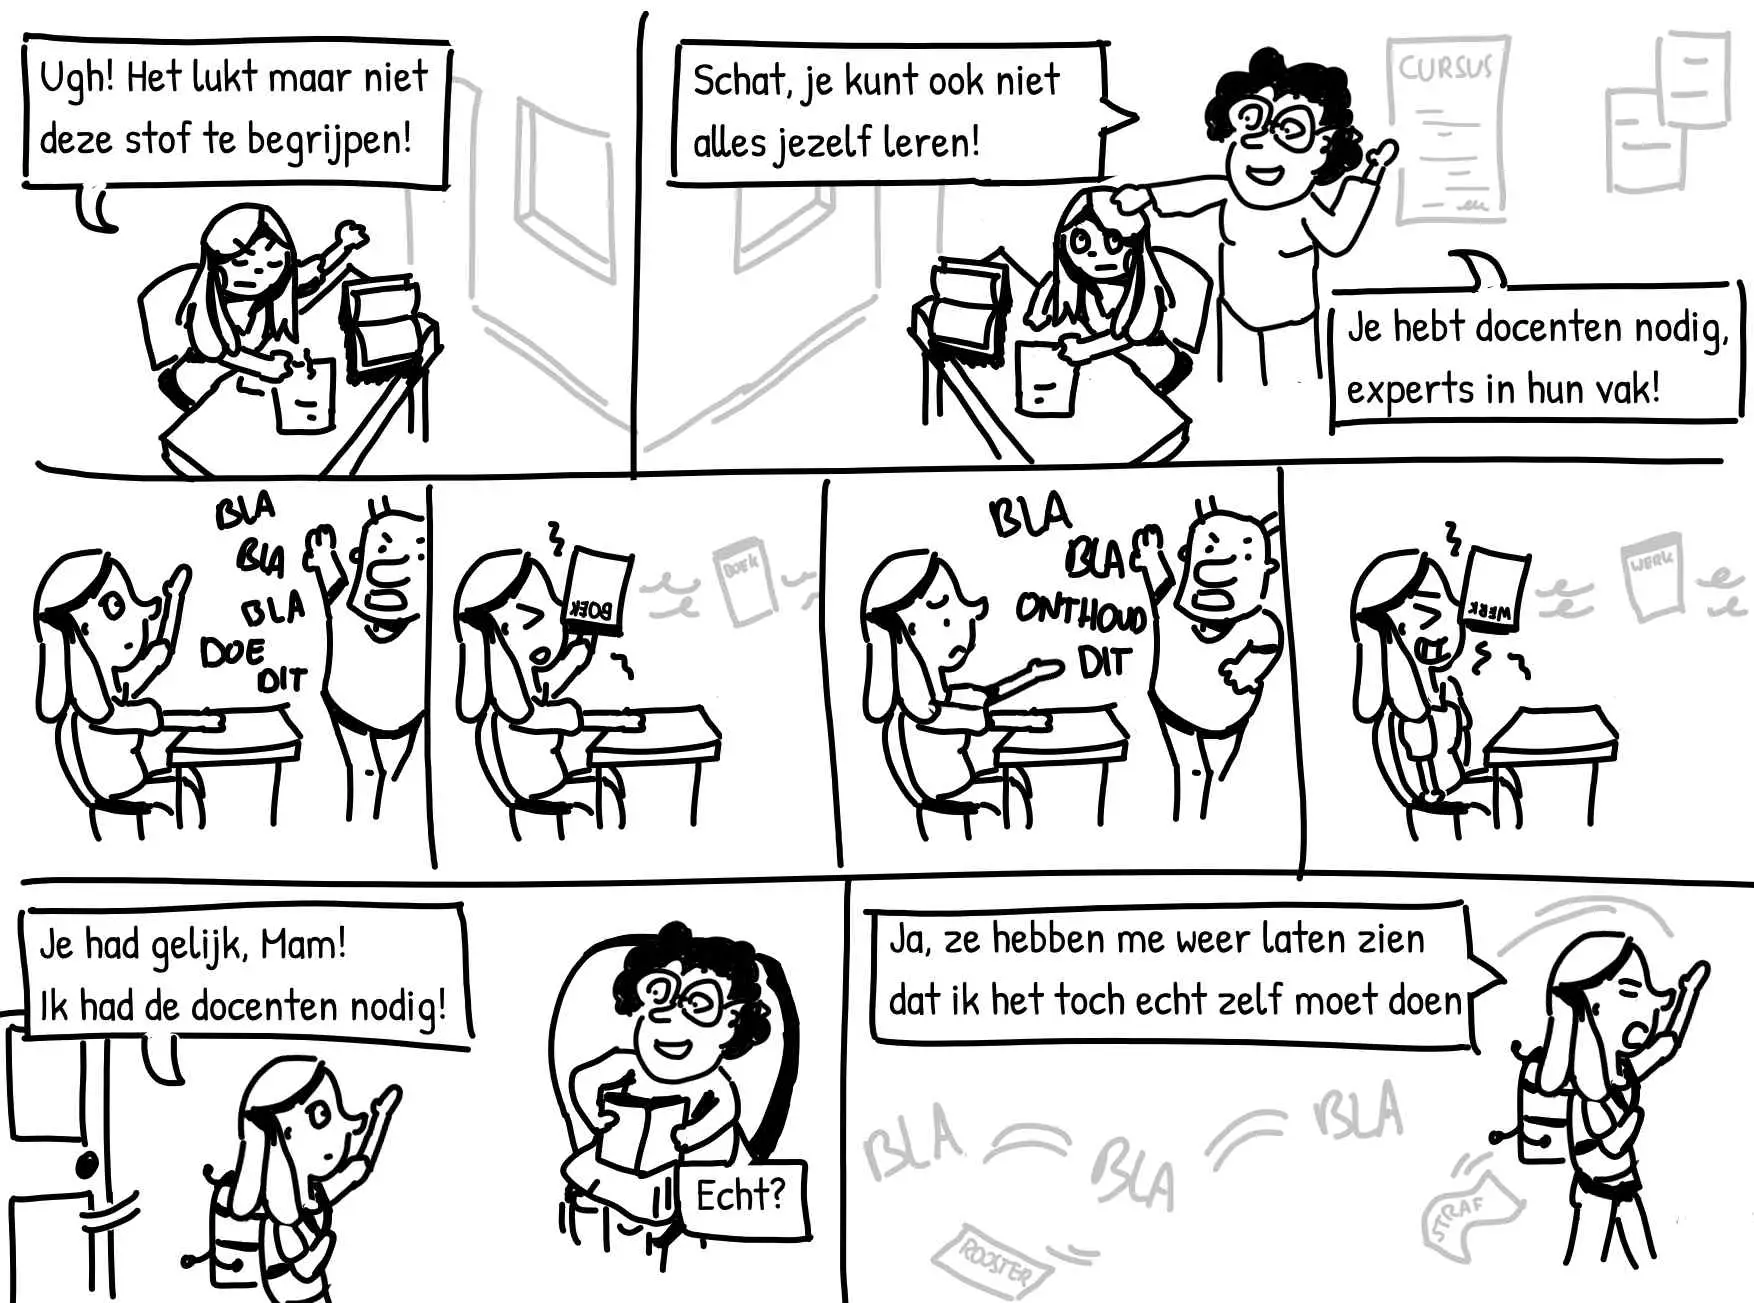 Ugh! Het lukt maar niet
deze stof te begrijpen!
Schat, je kunt ook niet
alles jezelf leren!
CURSUS
Je hebt docenten nodig,
experts in hun vak!
BLA
BLA
BLA
DOE
DIT
BOEK
BOEK
BLA
BLA
ONTHOUD
DIT
WERK
WERK
Je had gelijk, Mam!
Ik had de docenten nodig!
Echt?
Ja, ze hebben me weer laten zien
dat ik het toch echt zelf moet doen
BLA
BLA
BLA
ROOSTER
STRAF